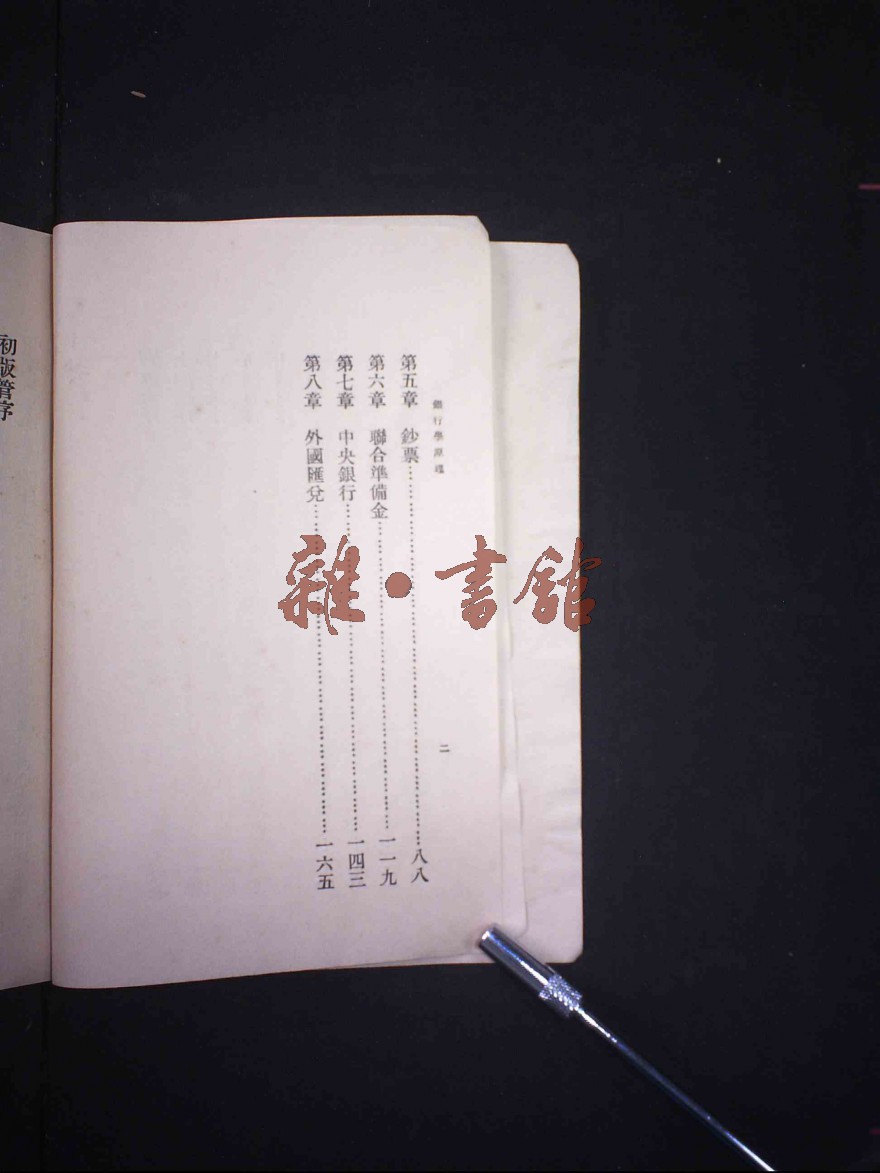 銀行學原理
二
第五章　鈔票……八八
第六章　聯合準備金……一一九
第七章　中央銀行……一四三
第八章　外國匯兌……一六五
初版管序
雜•書館